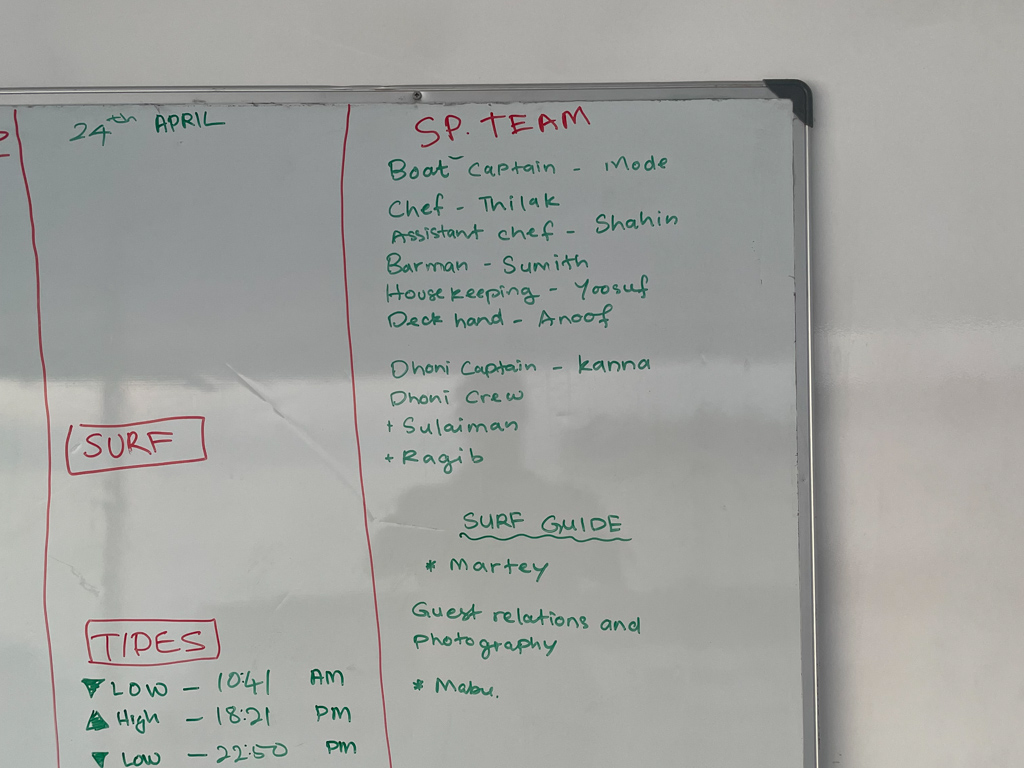 24th APRIL
SURF
TIDES
▼ LOW - 10:41 AM
▲ High - 18:21 PM
▼ Low - 22:50 PM
SP. TEAM
Boat Captain - Mode
Chef - Thilak
Assistant chef - Shahin
Barman - Sumith
Housekeeping - Yoosuf
Deck hand - Anoof
Dhoni Captain - Kanna
Dhoni Crew
+ Sulaiman
+ Ragib
SURF GUIDE
* Martey
Guest relations and
photography
* Mabu.